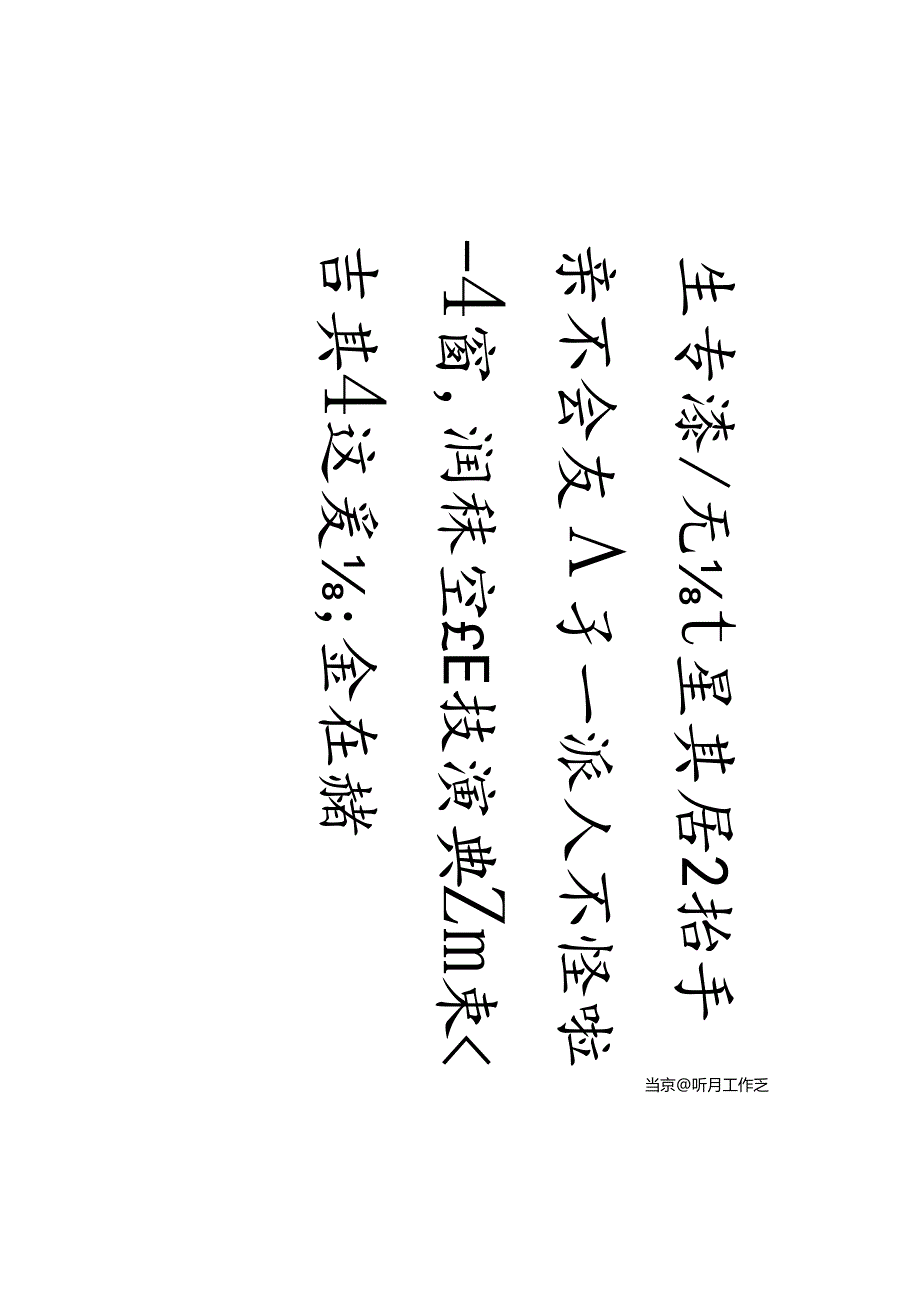 生专漆/无⅛t星其居2抬手
亲不会友Λ矛一派人不怪啦
-4窗，润秣空£E技演典Zm束<
吉其4这爰⅛;金在赭
当京@听月工作乏